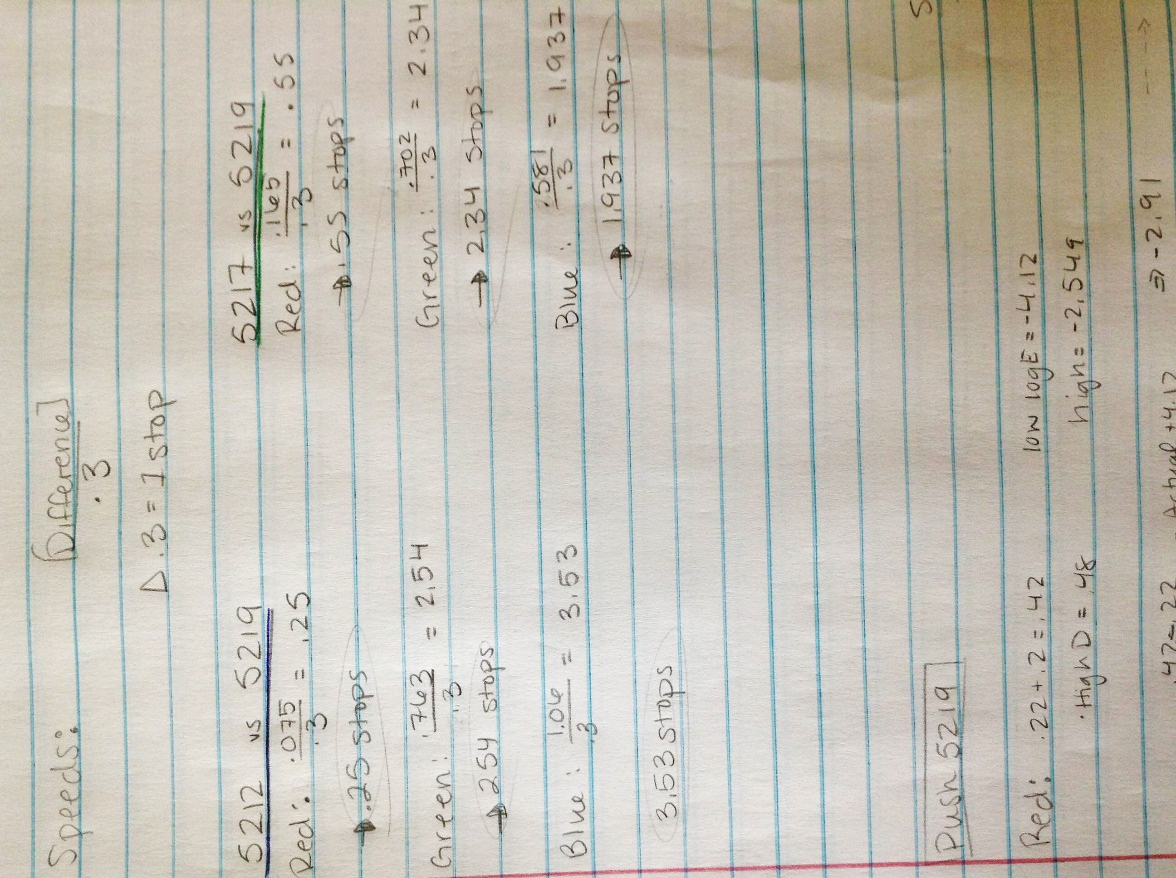 Speeds: |Difference|
.3
Δ .3 = 1 stop
5212 vs 5219
Red: .075/.3 = .25
→ .25 stops
Green: .763/.3 = 2.54
→ 2.54 stops
Blue: 1.06/.3 = 3.53
3.53 stops
5217 vs 5219
Red: .165/.3 = .55
→ .55 stops
Green: .702/.3 = 2.34
→ 2.34 stops
Blue: .581/.3 = 1.937
→ 1.937 stops
Push 5219
Red: .22+.2=.42 low logE = -4.12
·High D = .48 high = -2.549
.42-.22 Actual +4.12 ⇒ -2.91